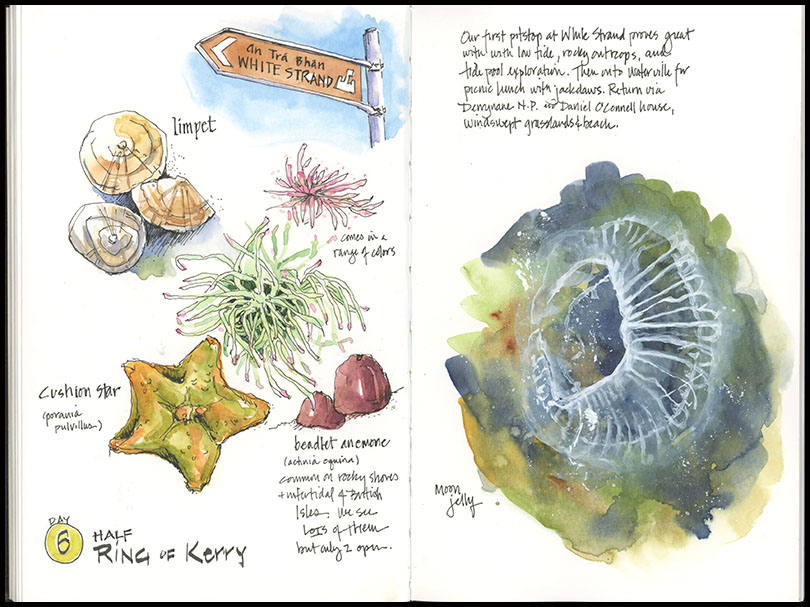 An Trá Bhán
WHITE STRAND
limpet
comes in a
range of colors
Cushion Star
(porania
pulvillus)
beadlet anemone
(actinia equina)
common on rocky shores
+ intertidal of British
Isles. We see
LOTS of them
but only 2 open.
DAY
6
HALF
RING OF KERRY
Our first pitstop at White Strand proves great
with with low tide, rocky outcrops, and
tide pool exploration. Then onto Waterville for
picnic lunch with jackdaws. Return via
Derrynane N.P. Daniel O'Connell house,
windswept grasslands & beach.
Moon
jelly